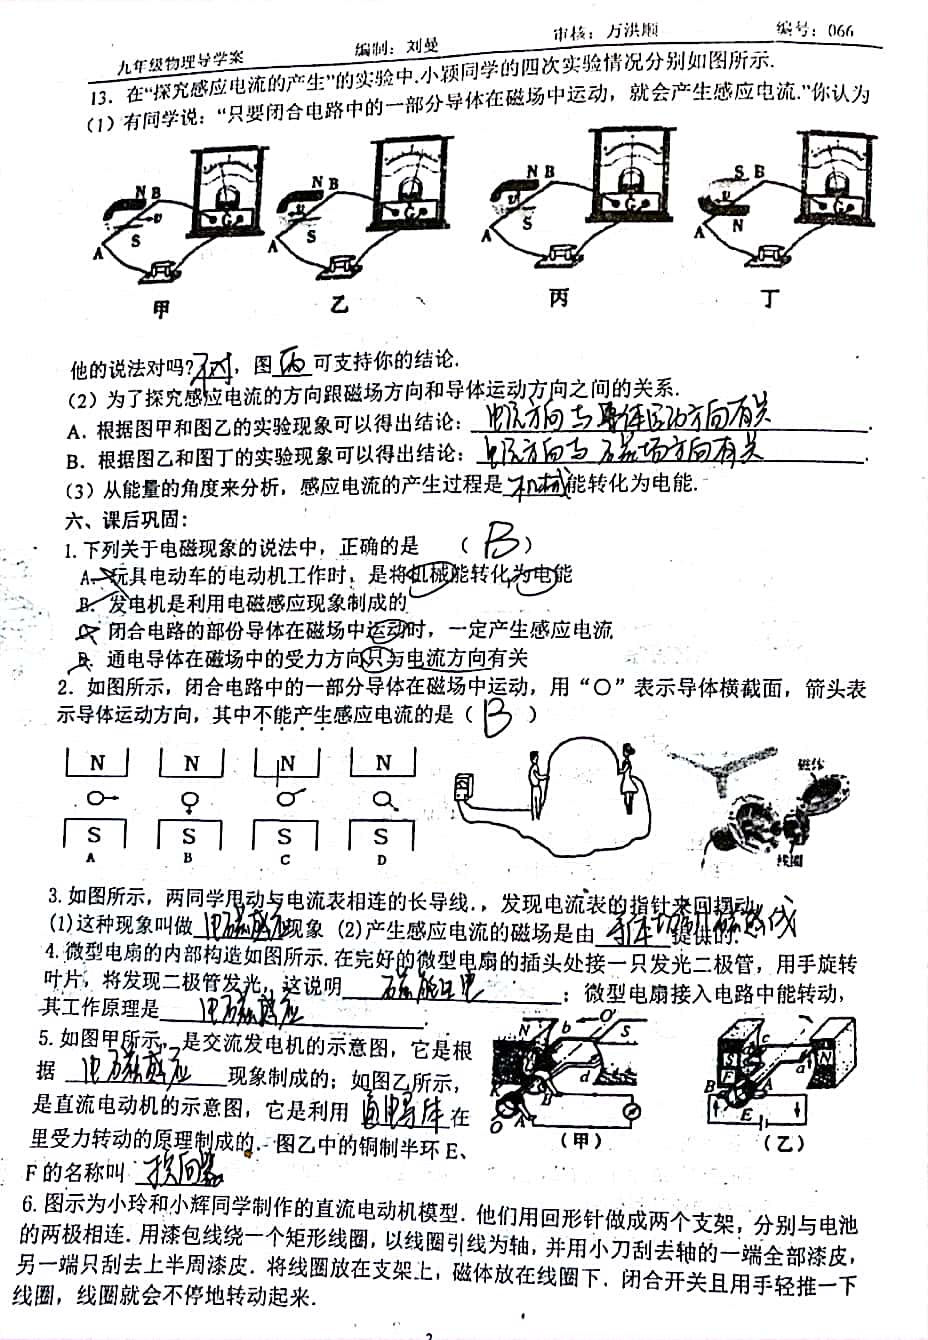 九年级物理导学案 编制：刘曼 审核：万洪顺 编号：066
13．在“探究感应电流的产生”的实验中.小颖同学的四次实验情况分别如图所示.
（1）有同学说：“只要闭合电路中的一部分导体在磁场中运动，就会产生感应电流.”你认为
N B v S A G 甲
N B v S A G 乙
N B v S A G 丙
S B v N A G 丁
他的说法对吗?不对，图丙可支持你的结论.
（2）为了探究感应电流的方向跟磁场方向和导体运动方向之间的关系.
A．根据图甲和图乙的实验现象可以得出结论：电流方向与导体运动方向有关.
B．根据图乙和图丁的实验现象可以得出结论：电流方向与磁场方向有关.
（3）从能量的角度来分析，感应电流的产生过程是机械能转化为电能.
六、课后巩固：
1.下列关于电磁现象的说法中，正确的是 （B）
A．玩具电动车的电动机工作时，是将机械能转化为电能
B．发电机是利用电磁感应现象制成的
闭合电路的部份导体在磁场中运动时，一定产生感应电流
D．通电导体在磁场中的受力方向只与电流方向有关
2．如图所示，闭合电路中的一部分导体在磁场中运动，用“○”表示导体横截面，箭头表
示导体运动方向，其中不能产生感应电流的是（B）
N N N N
S S S S
A B C D
磁体
线圈
3.如图所示，两同学甩动与电流表相连的长导线.，发现电流表的指针来回摆动.
(1)这种现象叫做电磁感应现象 (2)产生感应电流的磁场是由提供的.
4.微型电扇的内部构造如图所示.在完好的微型电扇的插头处接一只发光二极管，用手旋转
叶片，将发现二极管发光，这说明磁能生电；微型电扇接入电路中能转动，
其工作原理是电磁感应.
5.如图甲所示，是交流发电机的示意图，它是根
据电磁感应现象制成的；如图乙所示，
是直流电动机的示意图，它是利用通电导体在
里受力转动的原理制成的.图乙中的铜制半环E、
F的名称叫换向器
N b O′ S d B A O （甲）
S F c N a B A E （乙）
6.图示为小玲和小辉同学制作的直流电动机模型.他们用回形针做成两个支架，分别与电池
的两极相连.用漆包线绕一个矩形线圈，以线圈引线为轴，并用小刀刮去轴的一端全部漆皮，
另一端只刮去上半周漆皮.将线圈放在支架上，磁体放在线圈下.闭合开关且用手轻推一下
线圈，线圈就会不停地转动起来.
2